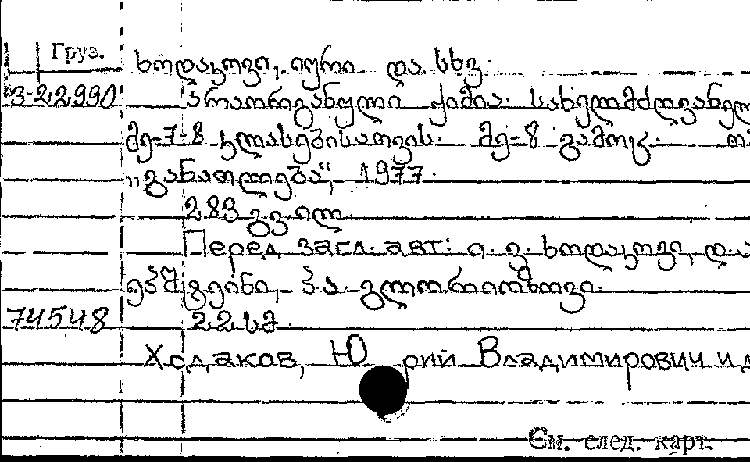 Груз.
ხოდაკოვი, იური და სხვ.
3-22990 არაორგანული ქიმია. სახელმძღვანელო
მე-7-8 კლასებისათვის. მე-8 გამოც.
„განათლება“, 1977.
283 გვ. ილ.
Перед загл. авт: ი. ვ. ხოდაკოვი, დ. ა.
ეპშტეინი, პ. ა. გლორიოზოვი.
74548 22 სმ.
Ходаков, Юрий Владимирович и д
См. след. карт.